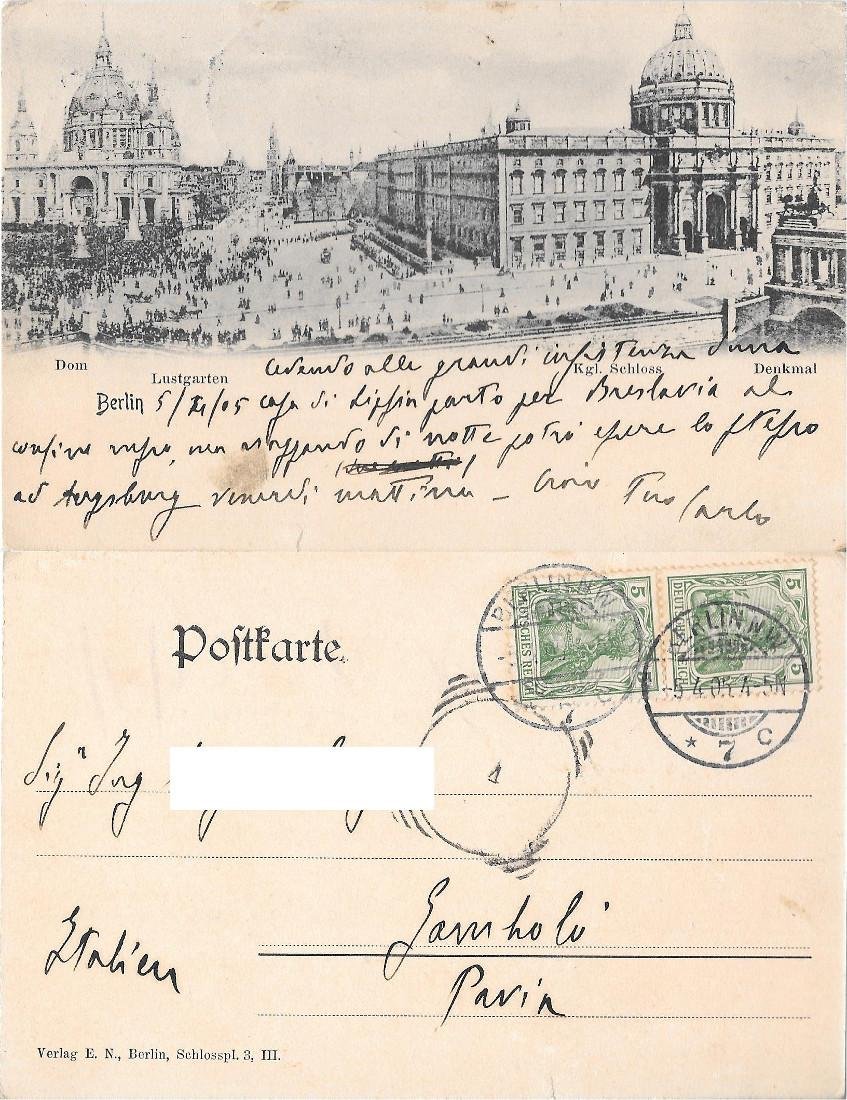 Dom
Lustgarten
Kgl. Schloss
Denkmal
cedendo alle grandi insistenza d'una
Berlin 5/ /05 casa di Lipsia parto per Breslavia al
confine russo, ma viaggiando di notte potrò essere lo stesso
ad Augsburg venerdi mattina – Tuo Carlo
Postkarte.
5 DEUTSCHES REICH
5 DEUTSCHES REICH
BERLIN N.W.
7 C
BERLIN N.W.
5.4.05. 4-5N
* 7 C
1
Sig Ing
Gambolò
Italien
Pavia
Verlag E. N., Berlin, Schlosspl. 3, III.